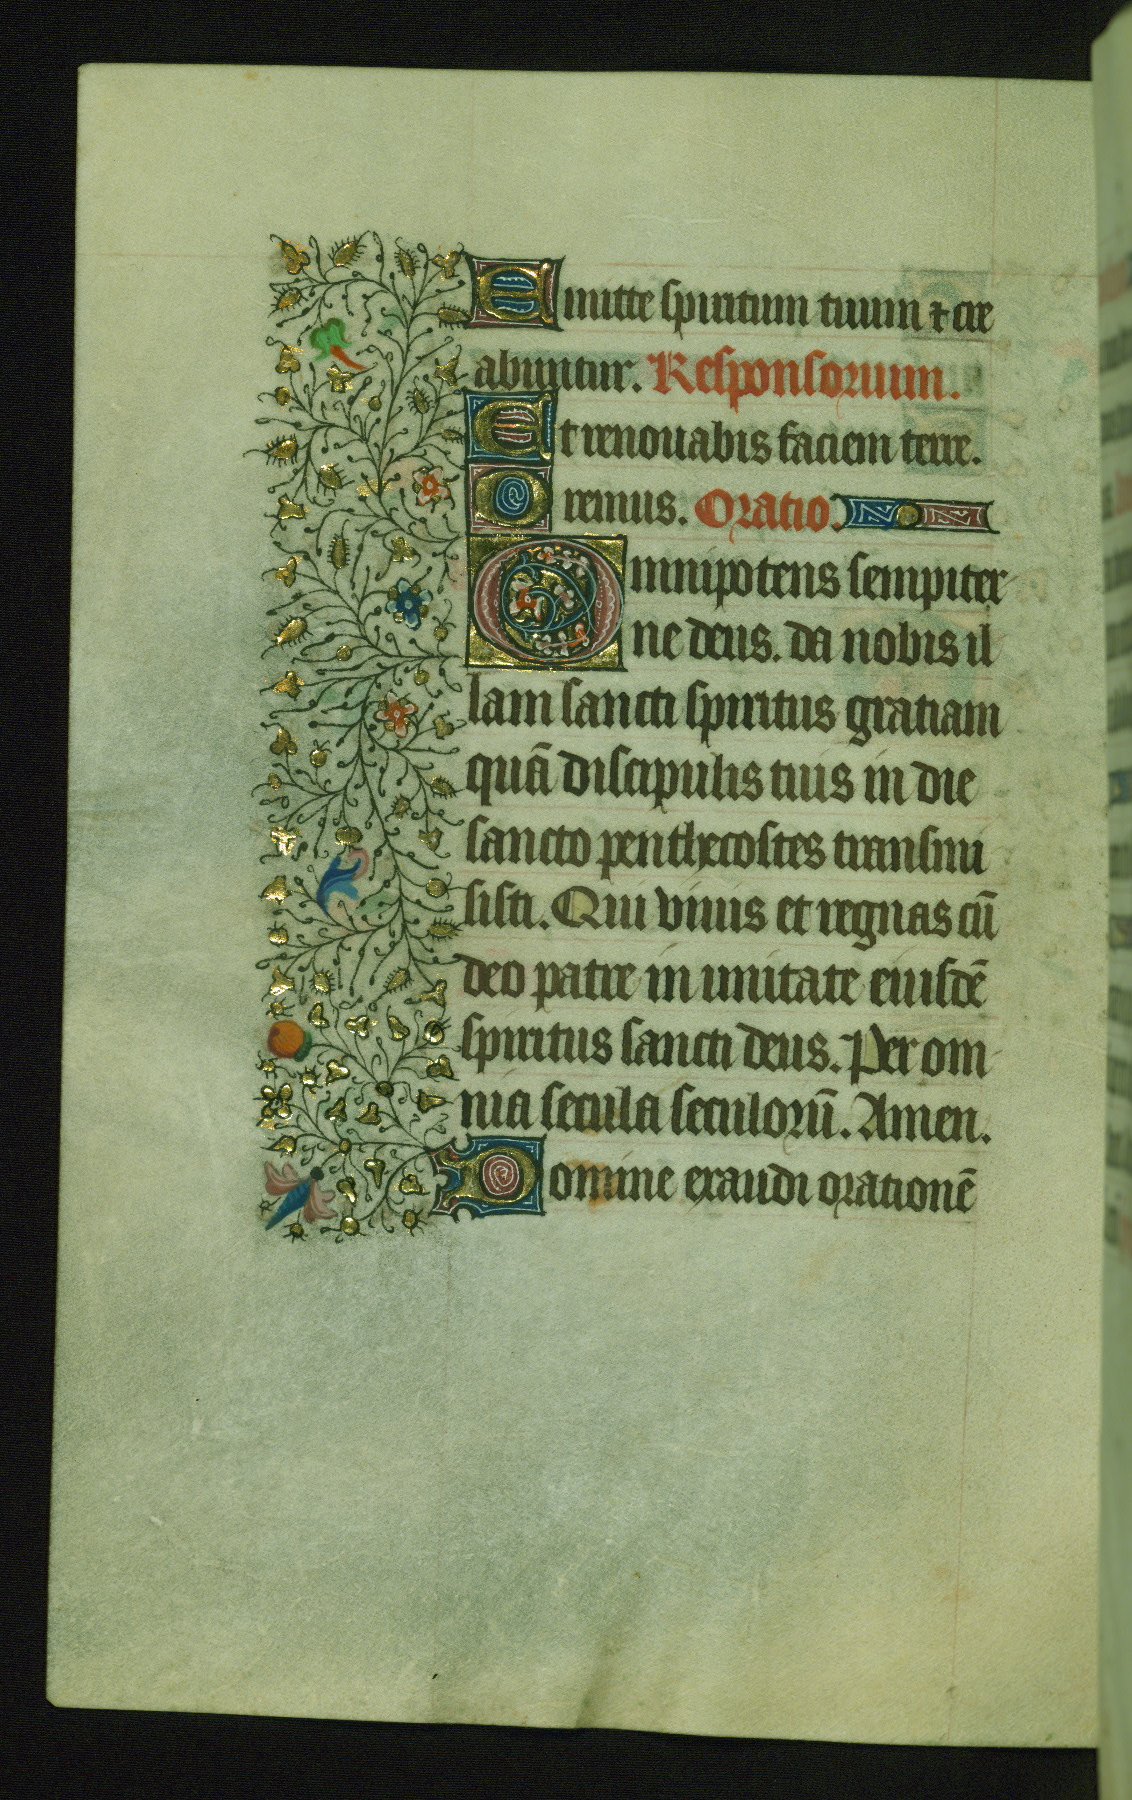 Emitte spiritum tuum ⁊ cre
abuntur. Responsorium.
Et renouabis faciem terre.
Oremus. Oratio.
Omnipotens sempiter
ne deus. da nobis il
lam sancti spiritus gratiam
quā discipulis tuis in die
sancto penthecostes transmi
sisti. Qui viuis et regnas cū
deo patre in unitate eiusdē
spiritus sancti deus. Per om
nia secula seculorū. Amen.
Domine exaudi orationē